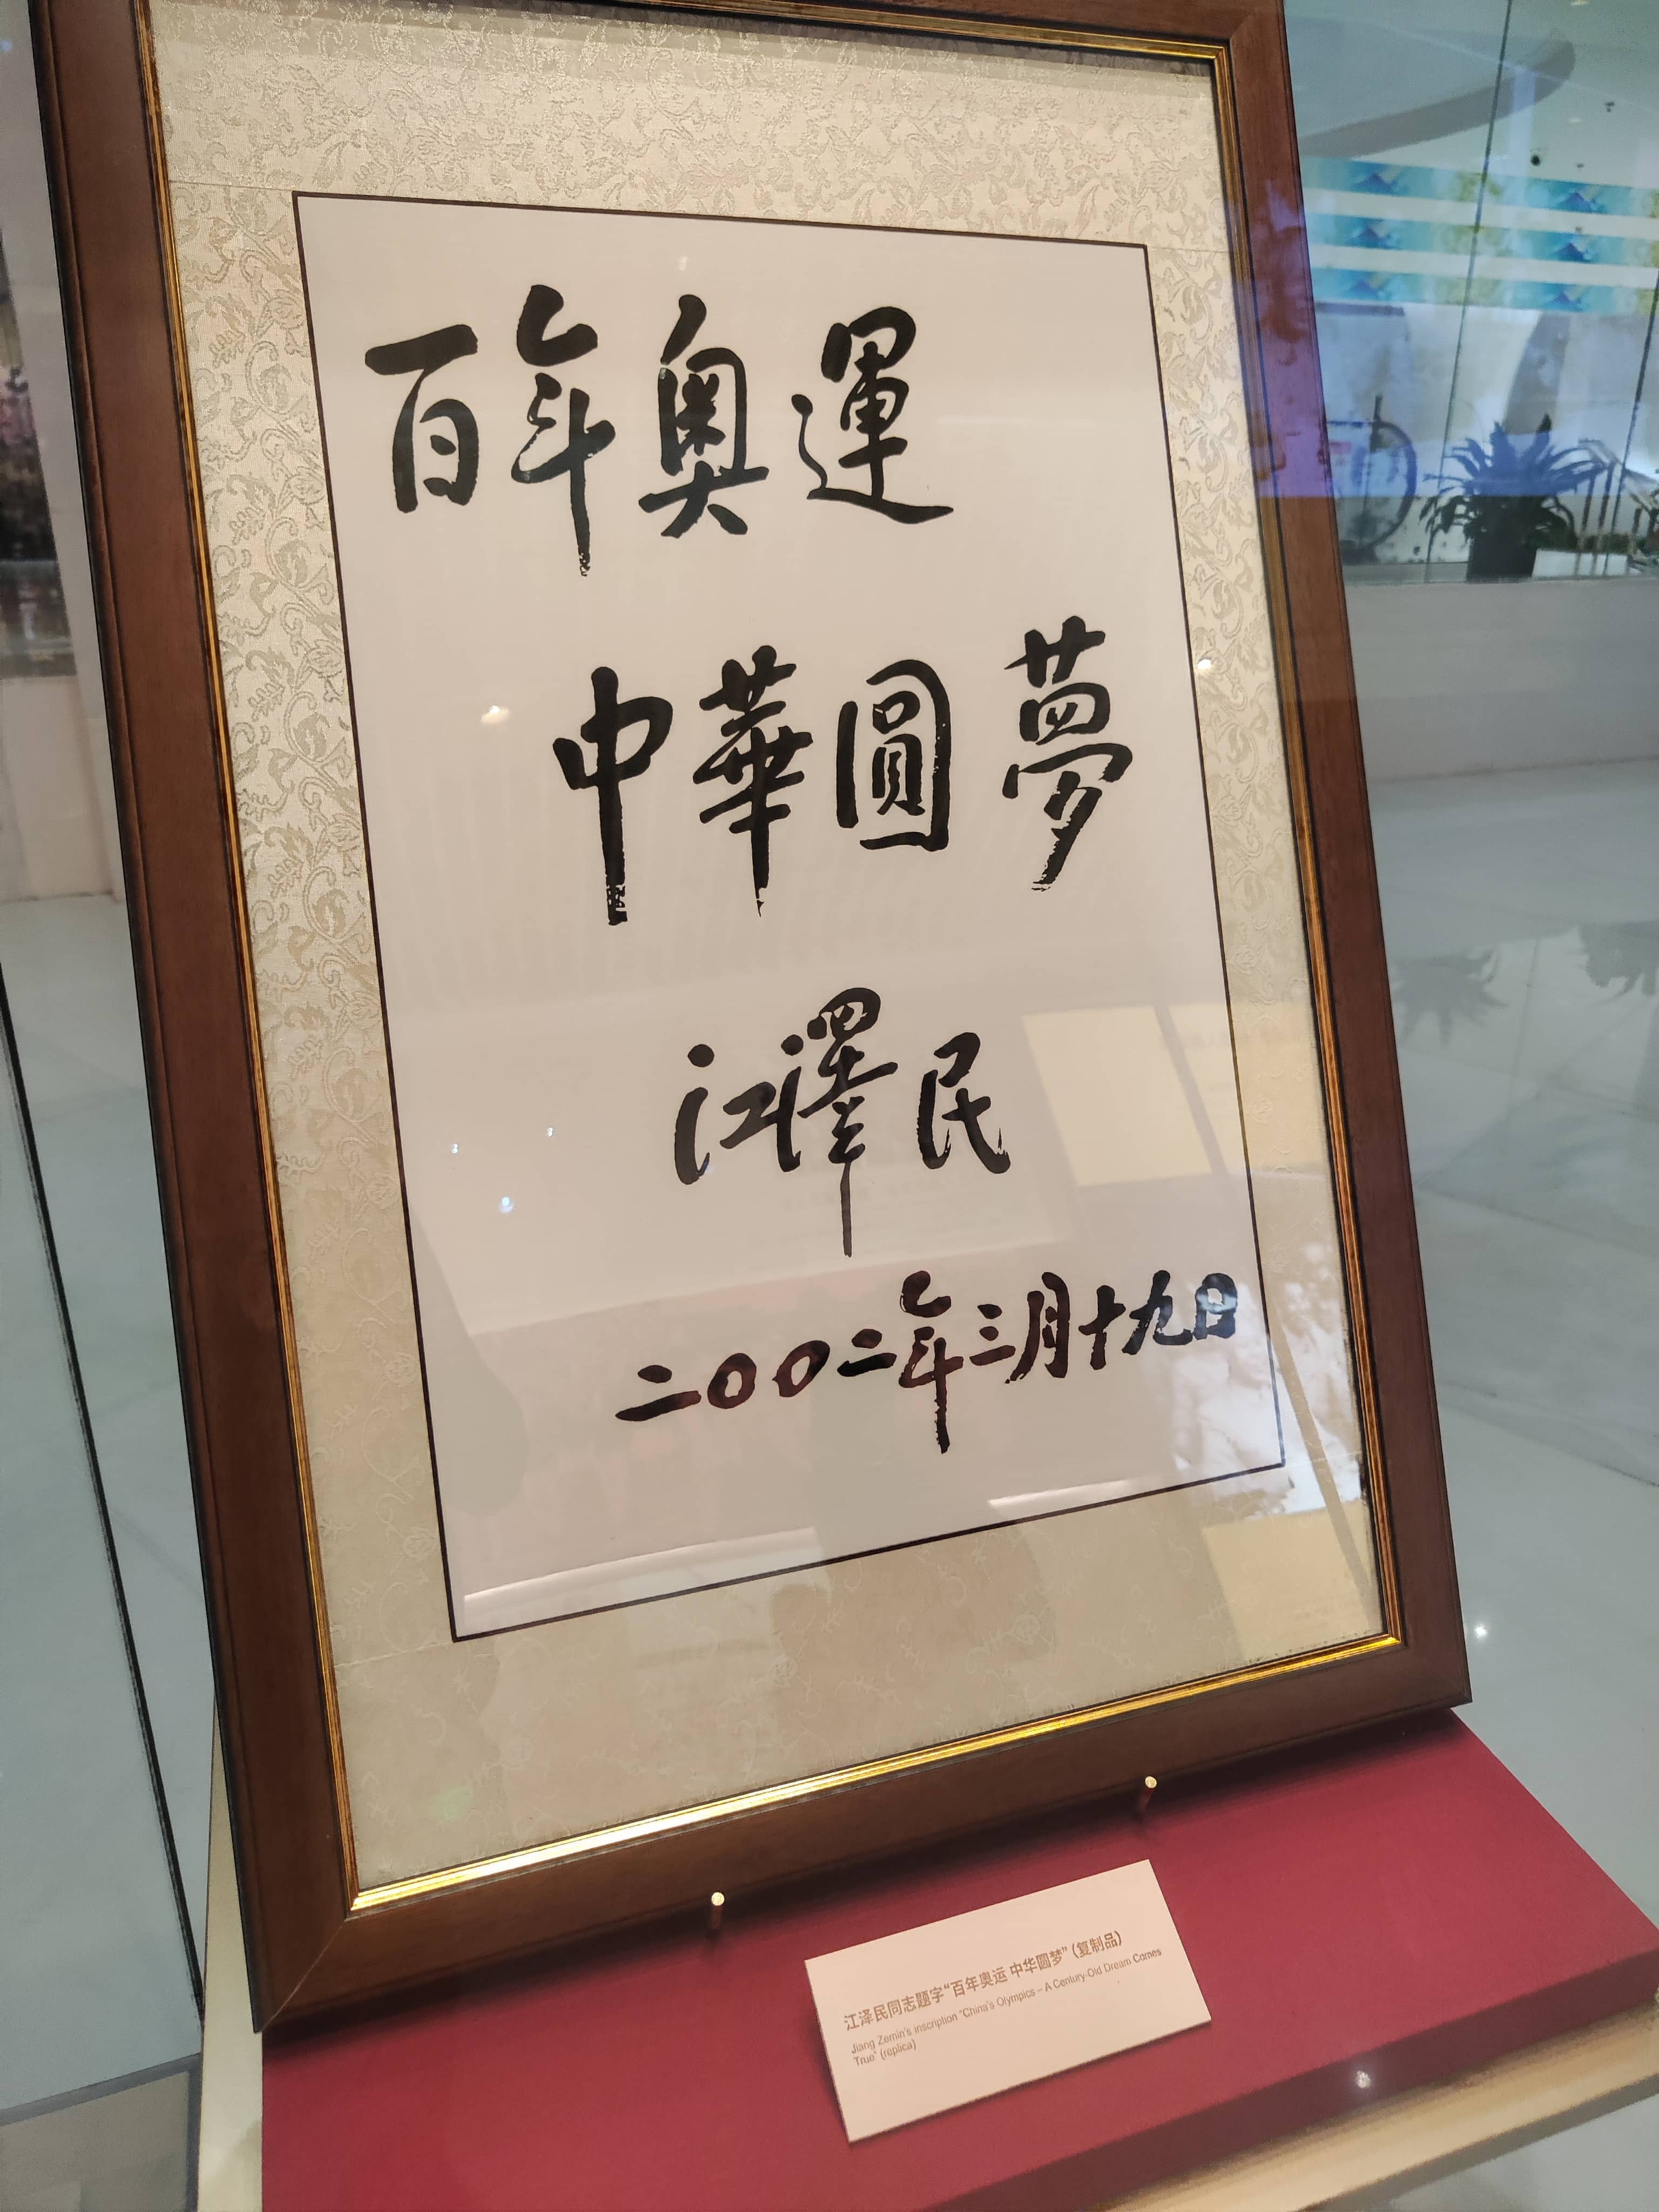 百年奧運
中華圓夢
江澤民
二〇〇二年三月十九日
江泽民同志题字“百年奥运 中华圆梦”（复制品）
Jiang Zemin's inscription “China's Olympics – A Century-Old Dream Comes
True” (replica)